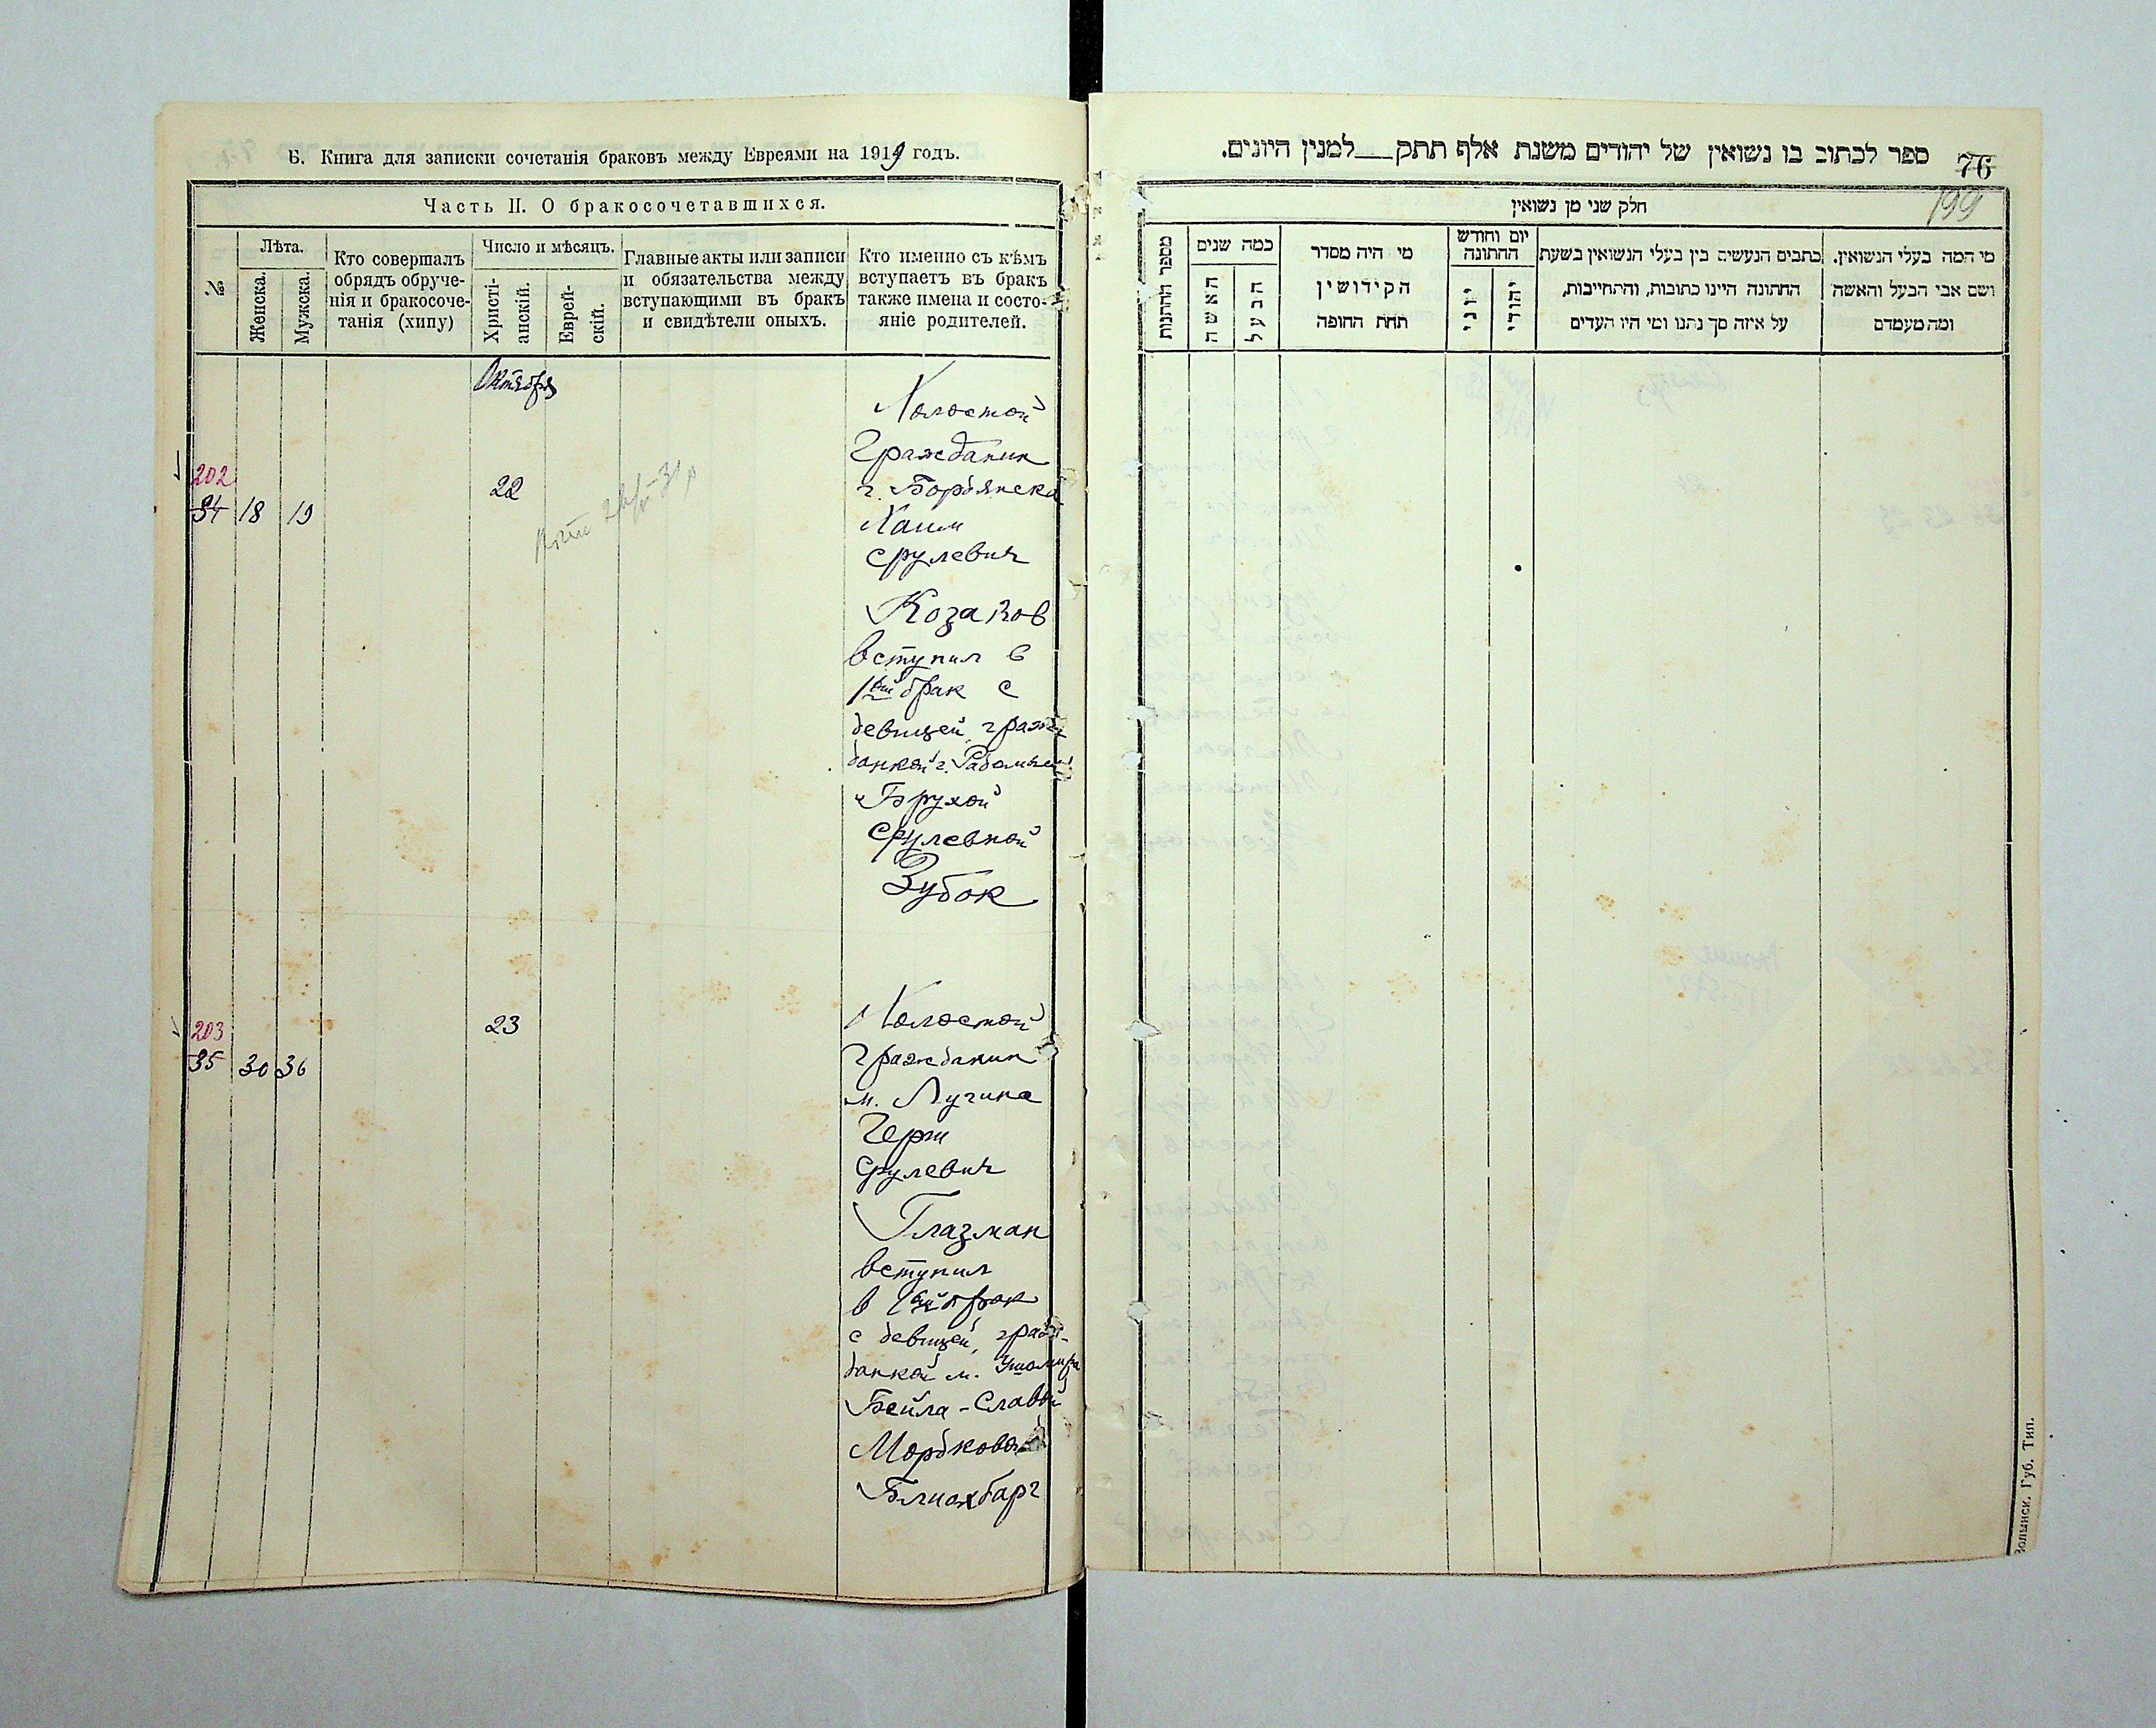 Б. Книга для записки сочетанія браковъ между Евреями на 1919 годъ.
Часть II. О бракосочетавшихся.
№
Лѣта.
Женска.
Мужска.
Кто совершалъ
обрядъ обруче-
нія и бракосоче-
танія (хипу)
Число и мѣсяцъ.
Христі-
анскій.
Еврей-
скій.
Главные акты или записи
и обязательства между
вступающими въ бракъ
и свидѣтели оныхъ.
Кто именно съ кѣмъ
вступаетъ въ бракъ
также имена и состо-
яніе родителей.
Октября
202
34 18 19
22
Холостой
Гражданин
г. Бордянска
Хаим
Срулевич
Козаков
вступил в
1ый брак с
девицей, граж
данкой г.
Брухой
Срулевной
Зубок
203
35 30 36
23
Холостой
Гражданин
м. Лугина
Герш
Срулевич
Глазман
вступил
в 1ый брак
с девицей, граж-
данкой м. Ушомира
Бейла-Славой
Мордковой
Блиахбарг
ספר לכתוב בו נשואין של יהודים משנת אלף תתק___למנין היונים.
76
199
חלק שני מן נשואין
מספר החתנות
כמה שנים
האשה
הבעל
מי היה מסדר
הקידושין
תחת החופה
יום וחודש
החתונה
יוני
יהודי
כתבים הנעשים בין בעלי הנשואין בשעת
החתונה היינו כתובות, והתחייבות,
על איזה סך נתנו ומי היו העדים
מי המה בעלי הנשואין.
ושם אבי הבעל והאשה
ומה מעמדם
Волынск. Губ. Тип.